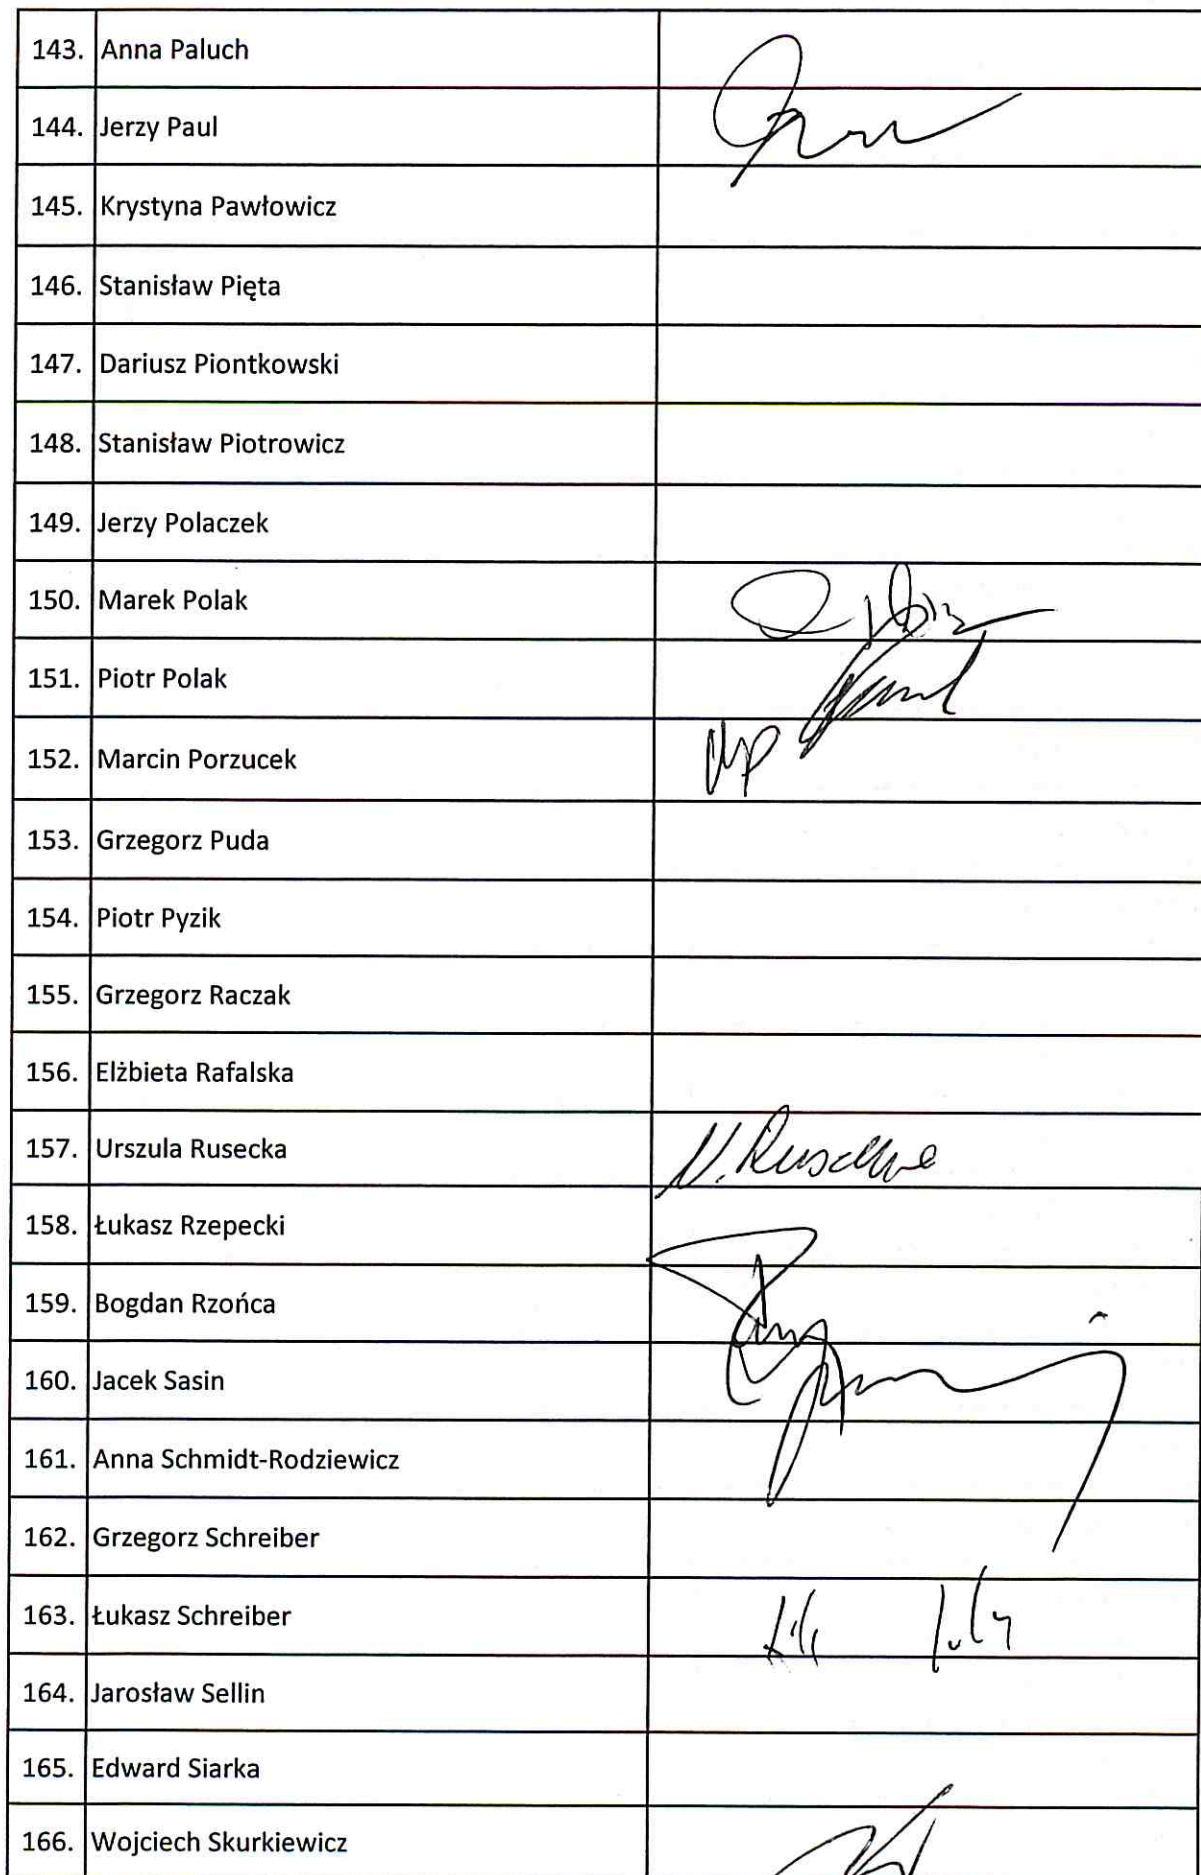 143. Anna Paluch
144. Jerzy Paul
145. Krystyna Pawłowicz
146. Stanisław Pięta
147. Dariusz Piontkowski
148. Stanisław Piotrowicz
149. Jerzy Polaczek
150. Marek Polak
151. Piotr Polak
152. Marcin Porzucek
153. Grzegorz Puda
154. Piotr Pyzik
155. Grzegorz Raczak
156. Elżbieta Rafalska
157. Urszula Rusecka
158. Łukasz Rzepecki
159. Bogdan Rzońca
160. Jacek Sasin
161. Anna Schmidt-Rodziewicz
162. Grzegorz Schreiber
163. Łukasz Schreiber
164. Jarosław Sellin
165. Edward Siarka
166. Wojciech Skurkiewicz